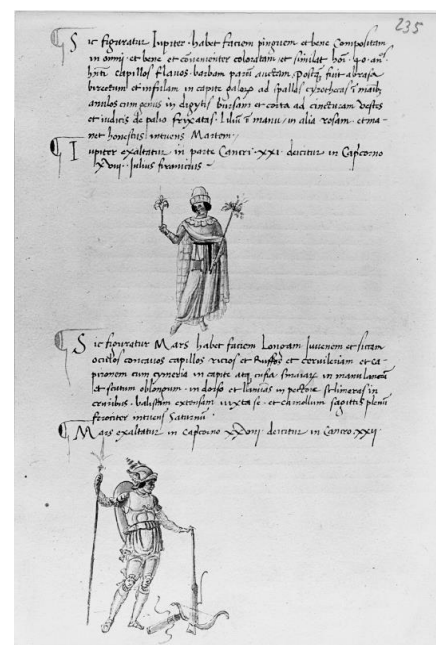 235
Sic figuratur Iupiter. habet faciem pinguem et bene Compositam
in omni et bene et convenienter coloratam et similat
capillos flavos. barbam parum auctam, postq fuit abrasa
birretum et infulam in capite galaxo ad spallas cyrothecas i maib
anulos cum genis in digytis bursam et ad cincturam vestes
et iudicis de palio frixatas. Liliu i manu in alia rosam. et ma-
net honestus intuens Martem.
Iupiter exaltatur in parte Cancri. XXI. deicitur in Capcorno
Iulius firmicius.
Sic figuratur Mars habet faciem Longam Iuvenem et siccam
ocullos concavos capillos ricios et Ruffos et cervileriam et ca-
pironem cum cymeria in capite atq in manu lanceam
et scutum oblongum in dorso et lamias in pectore schineras in
cruribus. balistam extensam iuxta se. et sagittis plenu
ferociter intuens Saturnu.
Mars exaltatur in Capcorno deicitur in Cancro. XXII.